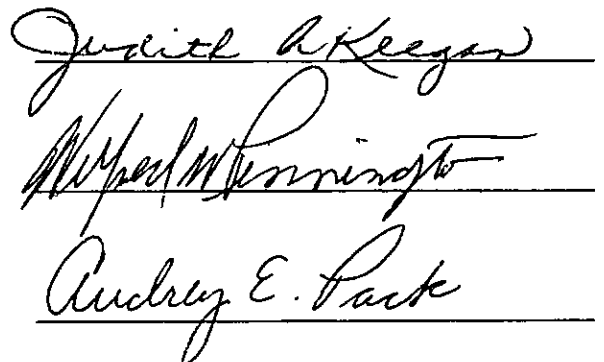 Judith A Keegan
Wilfred W Pennington
Audrey E. Pack